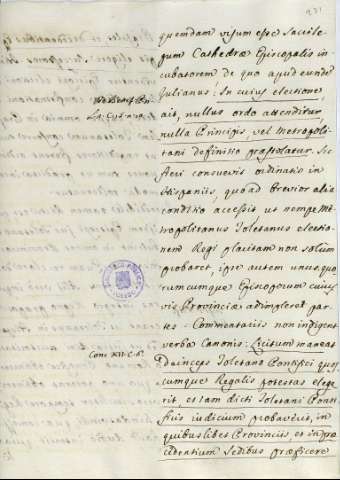 quendam visum esse sacrile
gum Cathedræ Episcopalis in
cubatorem de quo apud eunde
Julianus: In cuius electione,
ait, nullus ordo attenditur
nulla Principis, vel Metropoli
tani definitio præstolatur. Sic
fieri consuevit ordinatio in
Hispaniis, quoad brevior alia
conditio accessit, ut nempe Me
tropolitanus Toletanus electio
nem Regi placitam non solum
probaret, ipse autem unusquo
rumcumque Episcoporum cuius
vis Provinciæ adimpleret par
tes. Commentariis non indigent
verba Canonis: Licitum maneat
deinceps Toletano Pontifici quos
cumque Regalis potestas elege
rit, et iam dicti Toletani Ponti
ficis iudicium probaverit, in
quibuslibet Provinciis, et in præ
cedentium sedibus præficere
Conc. XII. C. 6.